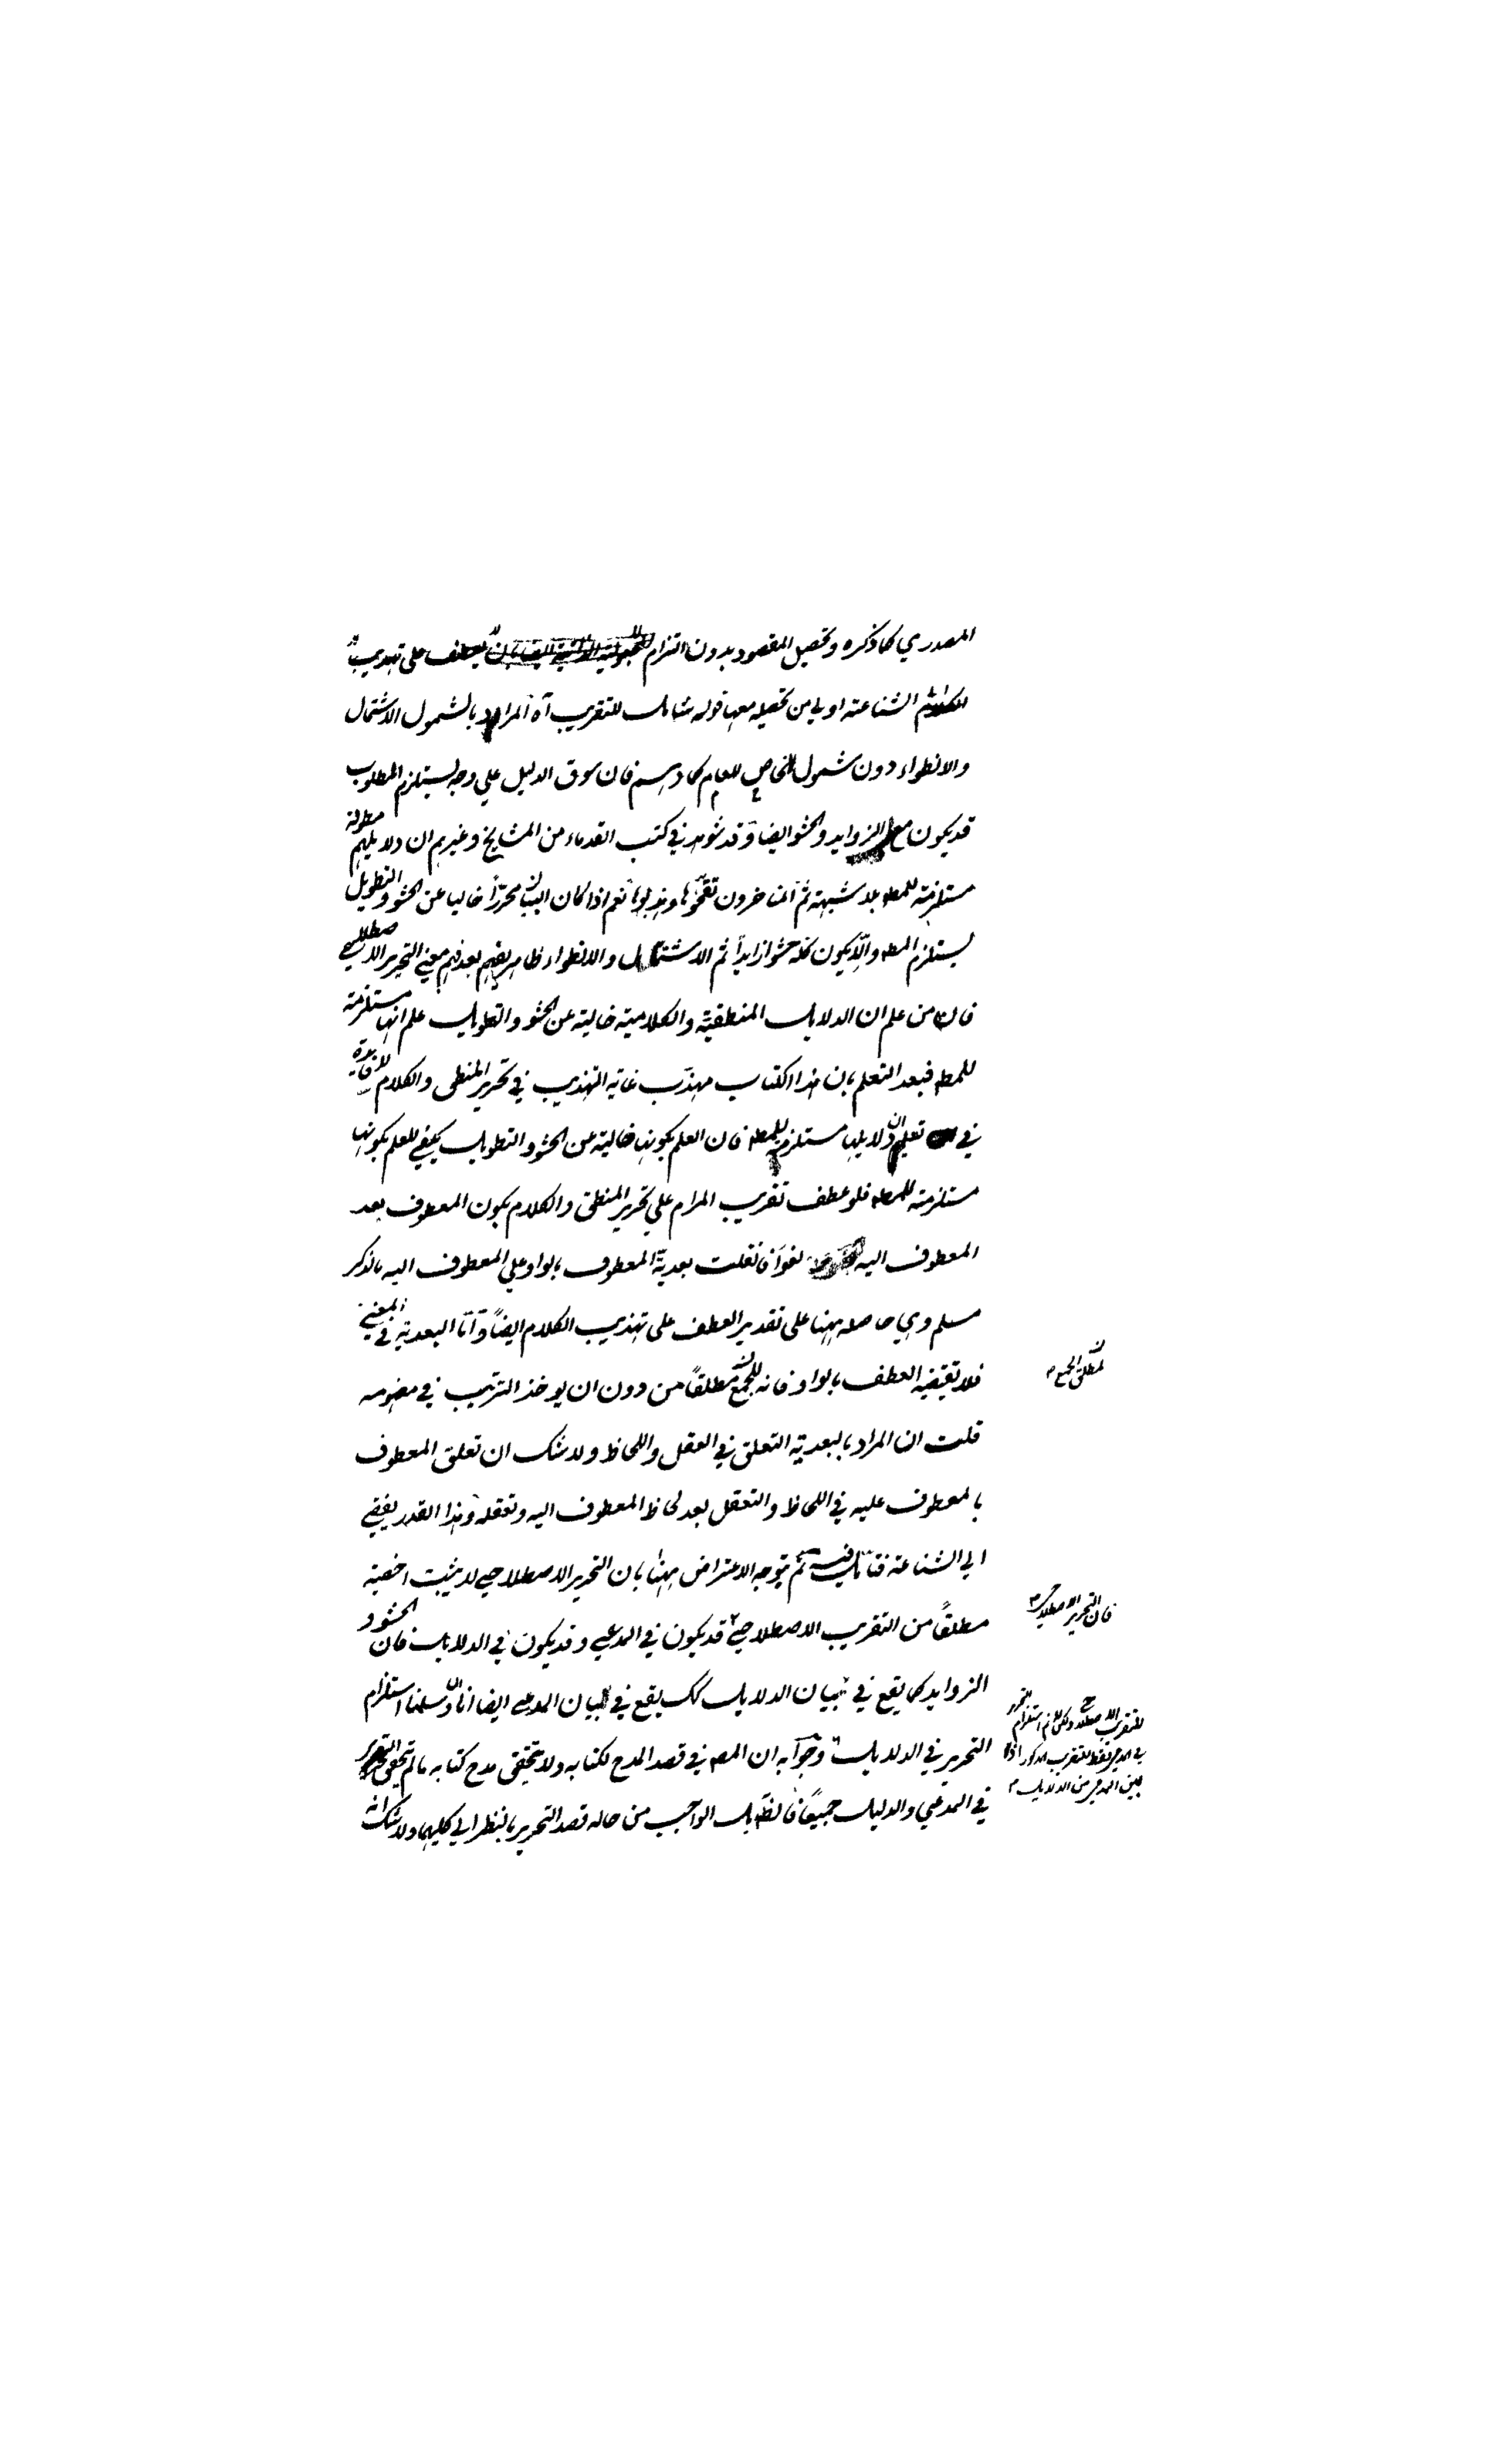 المصدري كما ذكره وتحصيل المقصود بدون التزام يعطف على تهذيب
الكلام الشناعة اولي من تحصيله معها قوله شامل للتقريب آه المراد بالشمول الاشتمال
والانطواء دون شمول الخاص للعام كما وسم فان سوق الدليل علي وجه يستلزم المطلوب
قد يكون مع الزوايد والحشو ايضا وقد شوهد في كتب القدماء من المشايخ وغيرهم ان دلايلهم مطولة
مستلزمة للمطه بلا شبهة ثم المتاخرون نقحوها وهذبوها نعم اذا كان البيان محررا خاليا عن الحشو والتطويل
يستلزم المطه والا يكون كله حشوا زايدا ثم الاشتمال والانطواء ظاهر يفهم بعد فهم معني التحرير الاصطلاحي
فان من علم ان الدلايل المنطقية والكلامية خالية عن الحشو والتطويل علم انها مستلزمة
للمطه فبعد التعلم بان هذا الكتاب مهذب غاية التهذيب في تحرير المنطق والكلام لا فايدة
في تعليم ان دلايلها مستلزمة للمطه فان العلم بكونها خالية عن الحشو والتطويل يكفي للعلم بكونها
مستلزمة للمطه فلو عطف تقريب المرام علي تحرير المنطق والكلام يكون المعطوف بعد
المعطوف اليه لغوا فان قلت بعدية المعطوف بالواو علي المعطوف اليه بالذكر
مسلم وهي حاصله ههنا على تقدير العطف على تهذيب الكلام ايضا واما البعدية في المعني
فلا تقتضيه العطف بالواو فانه للجمع مطلقا من دون ان يوخذ الترتيب في مفهومه
لمطلق الجمع
قلت ان المراد بالبعدية التعلق في العقل واللحاظ ولا شك ان تعلق المعطوف
بالمعطوف عليه في اللحاظ والتعقل بعد لحاظ المعطوف اليه وتعقله وهذا القدر يفضي
الي الشناعة فتامل فيه ثم يتوجه الاعتراض ههنا بان التحرير الاصطلاحي لا يثبت اخصيته
مطلقا من التقريب الاصطلاحي قد يكون في المدعي وقد يكون في الدلايل فان الحشو و
فان التحرير الاصطلاحي
الزوايد كما يقع في بيان الدلايل كك يقع في بيان المدعي ايضا انا وان سلمنا استلزام
التحرير في الدلايل وجوابه ان المصه في قصد المدح لكتابه ولا يتحقق مدح كتابه ما لم يتحقق التحرير
للتقريب الاصطلاحي ولكن لا نم استلزام التحرير
في المدعي فقط للتقريب المذكور
من الدلايل
في المدعي والدليل جميعا فالظه بل الواجب من حاله قصد التحرير بالنظر الي كليهما ولا شك انه